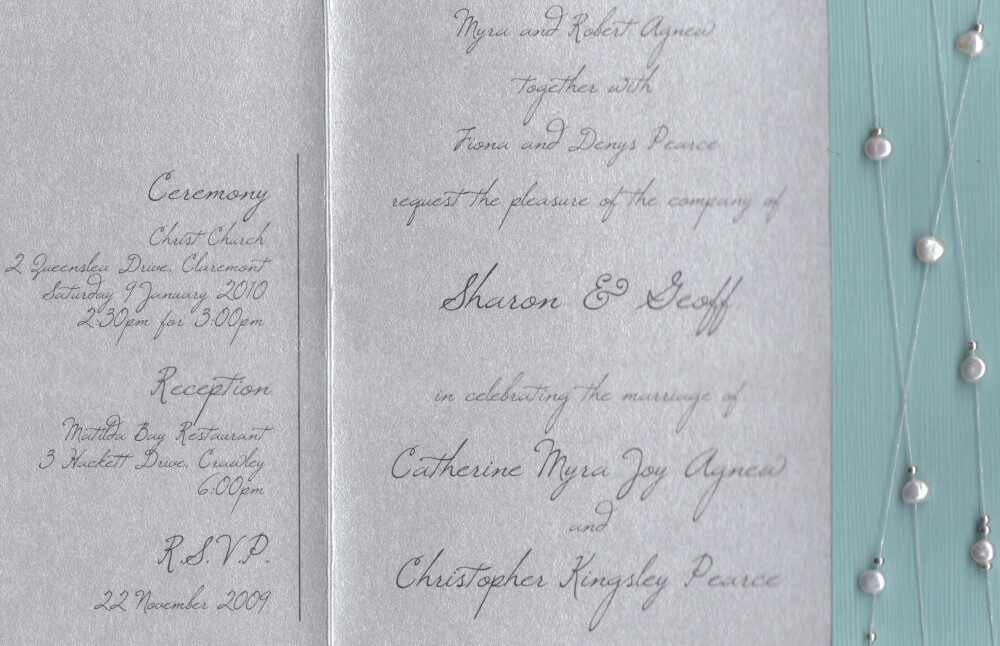 Ceremony
Christ Church
2 Queenslea Drive, Claremont
Saturday 9 January 2010
2:30pm for 3:00pm
Reception
Matilda Bay Restaurant
3 Hackett Drive, Crawley
6:00pm
R.S.V.P.
22 November 2009
Myra and Robert Agnew
together with
Fiona and Denys Pearce
request the pleasure of the company of
Sharon & Geoff
in celebrating the marriage of
Catherine Myra Joy Agnew
and
Christopher Kingsley Pearce